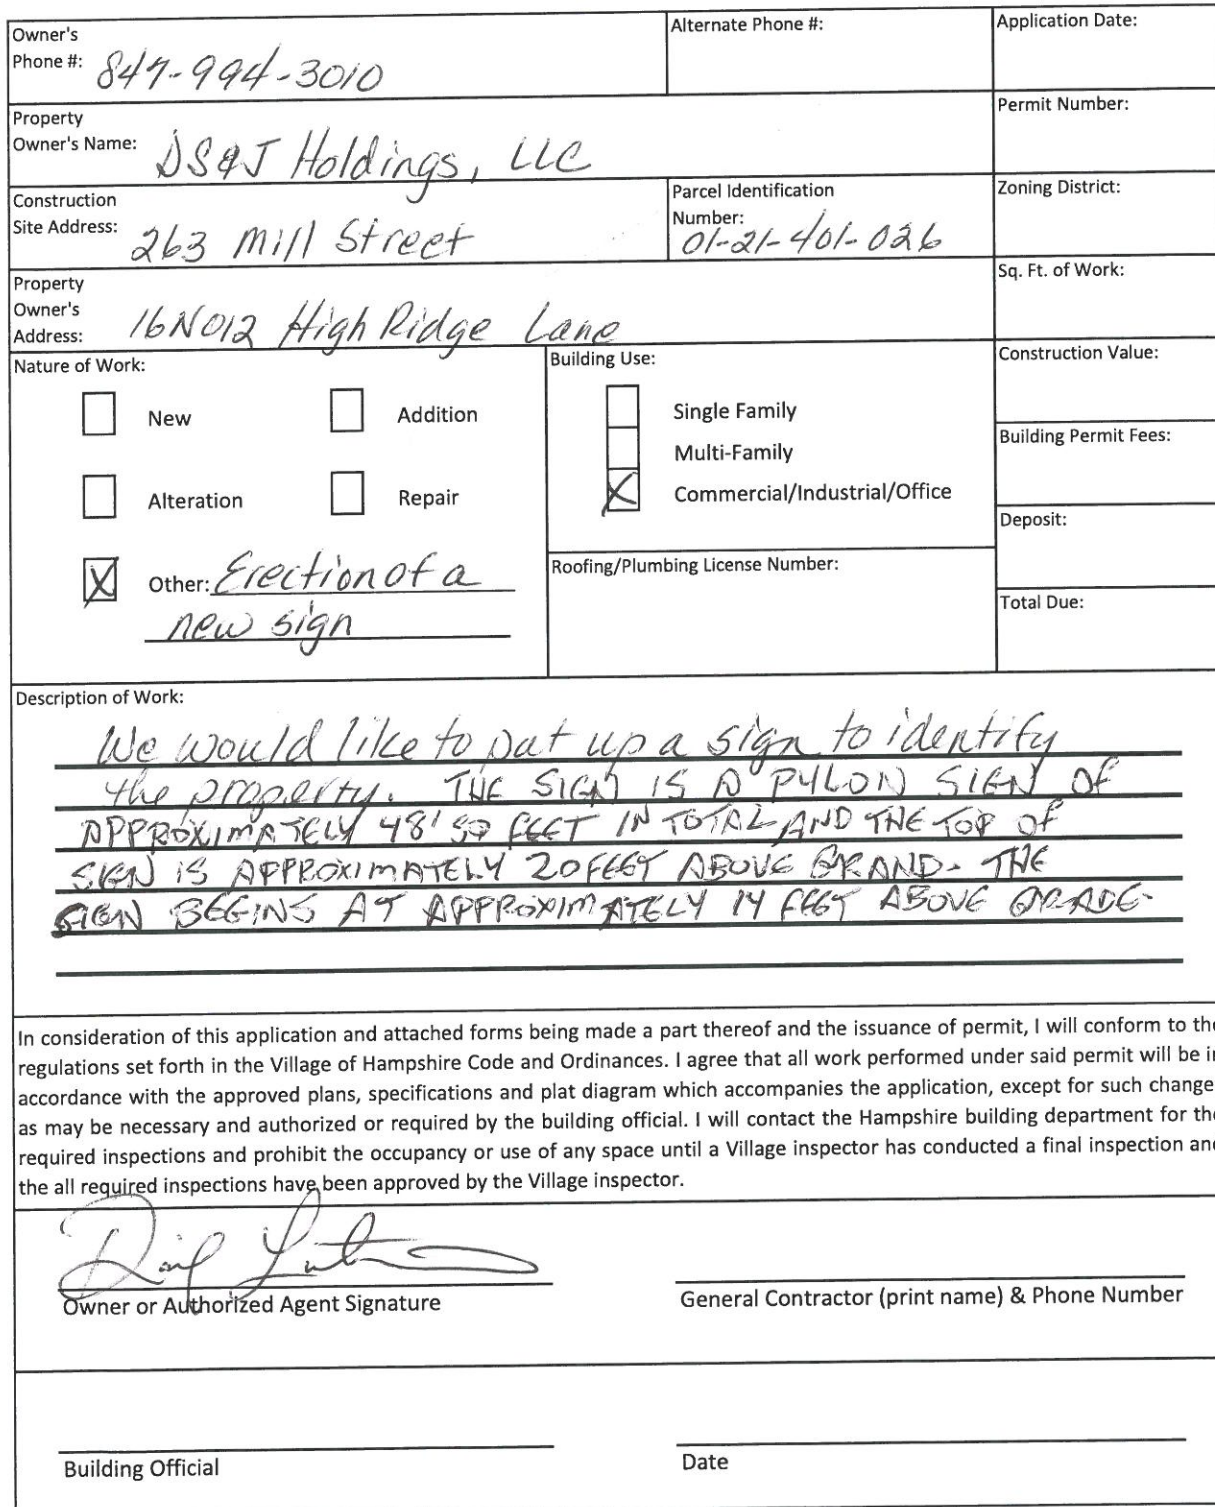 Owner's
Phone #: 847-994-3010
Alternate Phone #:
Application Date:
Property
Owner's Name: DS&J Holdings, LLC
Permit Number:
Construction
Site Address: 263 Mill Street
Parcel Identification
Number:
01-21-401-026
Zoning District:
Property
Owner's
Address: 16N012 High Ridge Lane
Sq. Ft. of Work:
Nature of Work:
New
Addition
Alteration
Repair
X Other: Erection of a
new sign
Building Use:
Single Family
Multi-Family
X Commercial/Industrial/Office
Roofing/Plumbing License Number:
Construction Value:
Building Permit Fees:
Deposit:
Total Due:
Description of Work:
We would like to put up a sign to identify
the property. THE SIGN IS A PYLON SIGN OF
APPROXIMATELY 48' SQ FEET IN TOTAL AND THE TOP OF
SIGN IS APPROXIMATELY 20 FEET ABOVE GRAND. THE
SIGN BEGINS AT APPROXIMATELY 14 FEET ABOVE GRADE.
In consideration of this application and attached forms being made a part thereof and the issuance of permit, I will conform to the
regulations set forth in the Village of Hampshire Code and Ordinances. I agree that all work performed under said permit will be in
accordance with the approved plans, specifications and plat diagram which accompanies the application, except for such change
as may be necessary and authorized or required by the building official. I will contact the Hampshire building department for the
required inspections and prohibit the occupancy or use of any space until a Village inspector has conducted a final inspection and
the all required inspections have been approved by the Village inspector.
Owner or Authorized Agent Signature
General Contractor (print name) & Phone Number
Building Official
Date